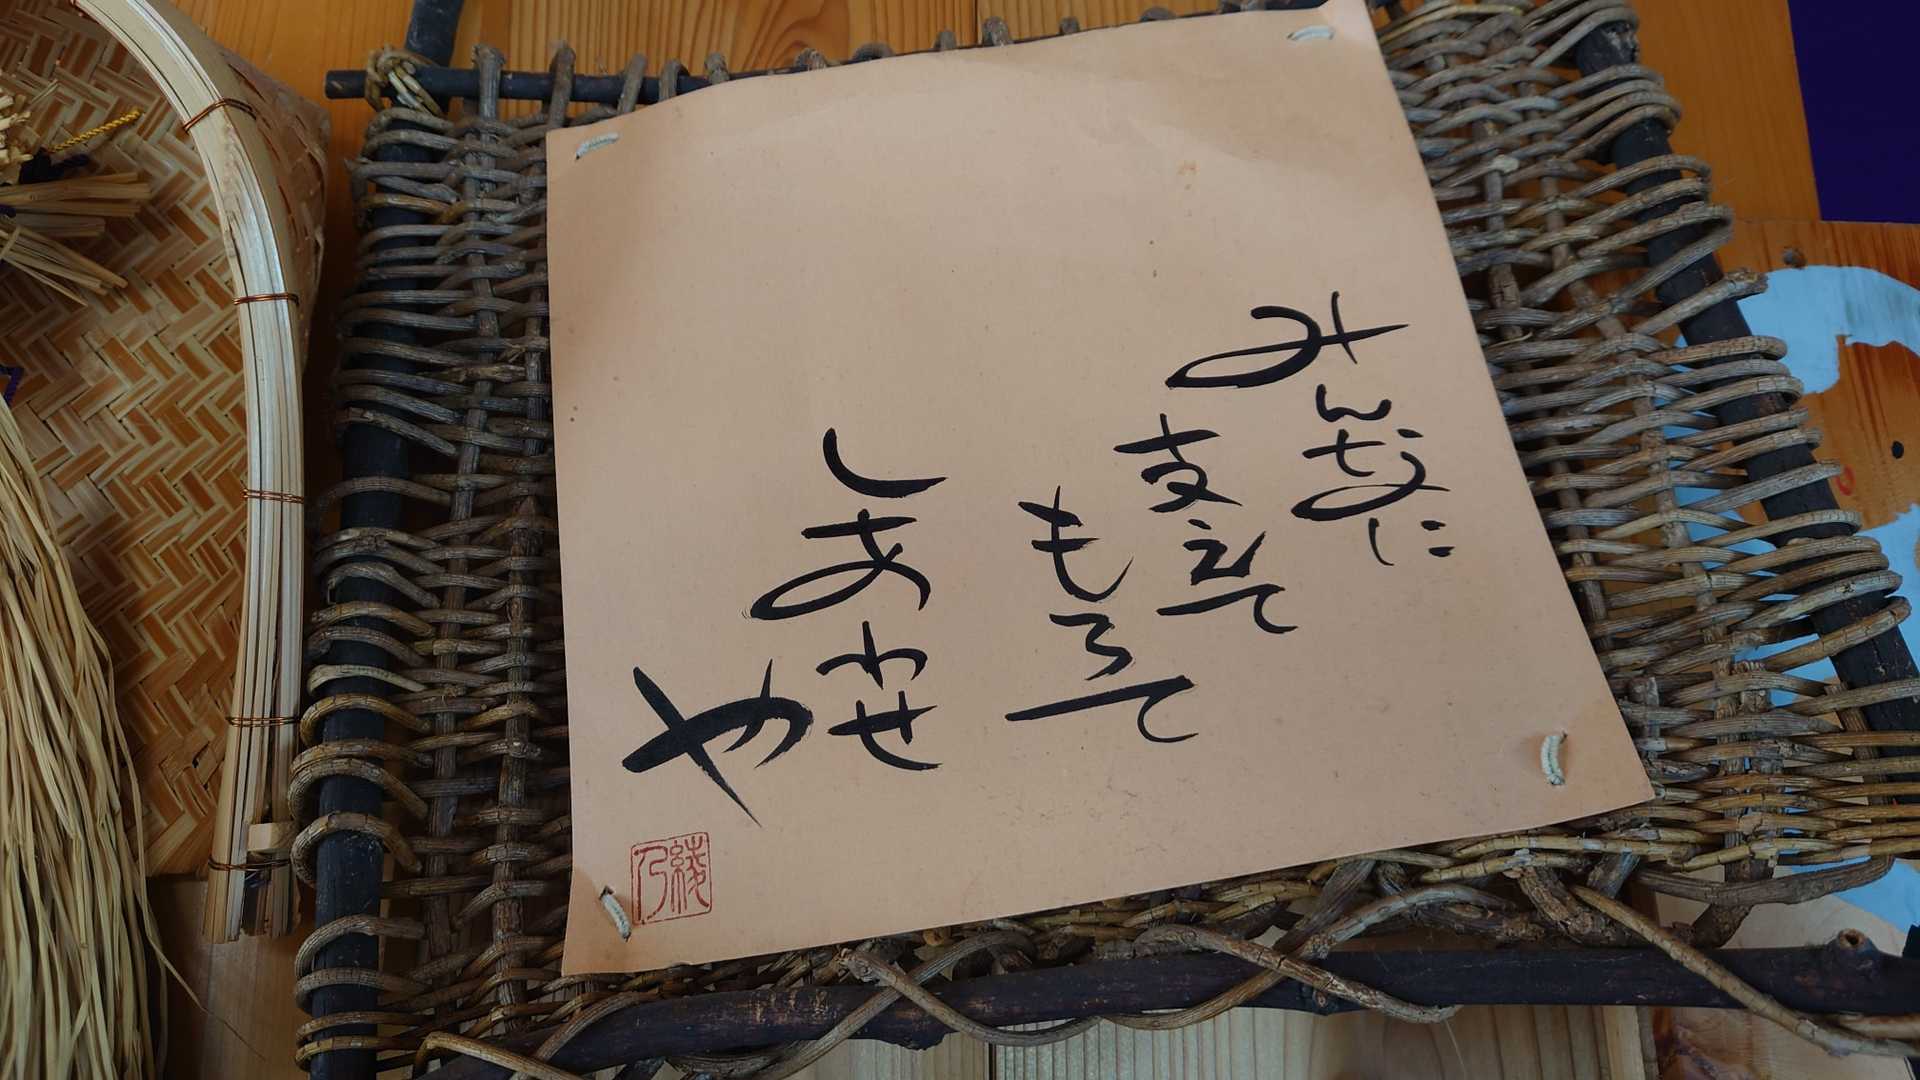 みんなに
支えて
もろて
しあわせ
や
綾乃